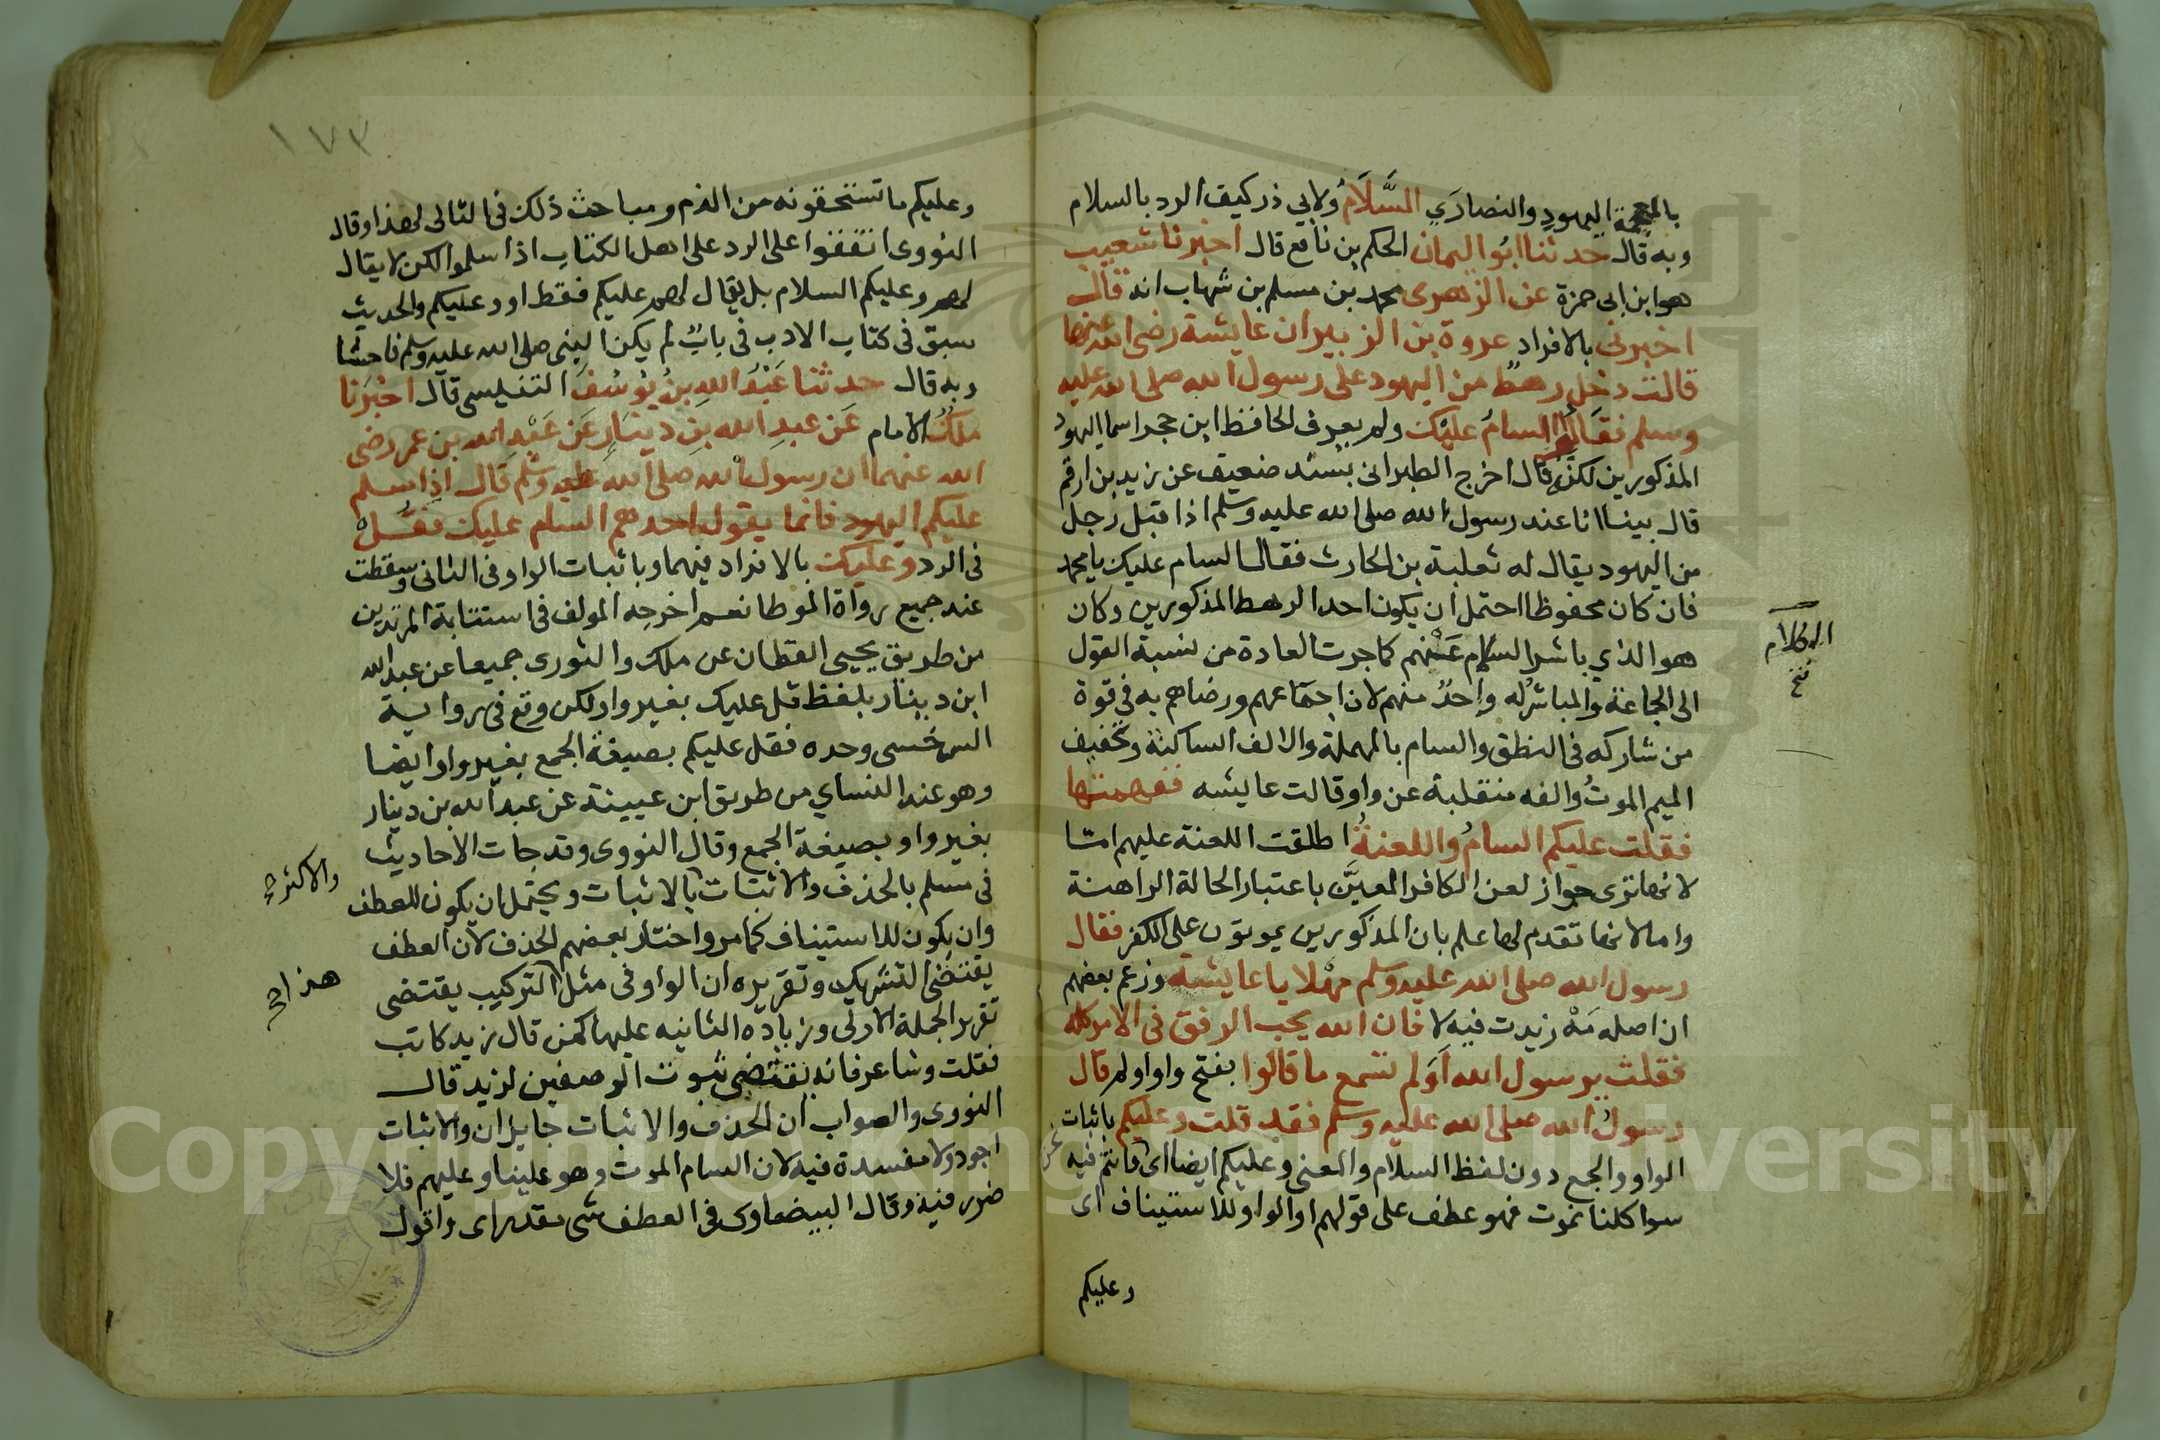 بالمعجمة اليهود والنصارَي السَّلَامُ ولابي ذر كيف الرد بالسلام
وبه قال حدثنا ابُو اليمان الحكم بن نافع قال اخبرنا شعيب
هوا بن ابى حمزة عن الزهرى محمد بن مسلم بن شهاب انه قال
اخبرنى بالافراد عروة بن الزبير ان عايشة رضى الله عنها
قالت دخل رهط من اليهود على رسول الله صلى الله عليه
وسلم فقَالُوا السامُ عليْك ولم يعرف الحافظ ابن حجر اسما اليهود
المذكورين لكنه قال اخرج الطبرانى بسند ضعيف عن زيد بن ارقم
قال بينا انا عند رسول الله صلى الله عليه وسلم اذ اقبل رجل
من اليهود يقال له ثعلبة بن الحارث فقال السام عليك يا محمد
فان كان محفوظا احتمل ان يكون احد الرهط المذكورين وكان
هو الذي باشر السلام عَنْهم كما جرت العادة من نسبة القول
الى الجماعة والمباشر له واحدٌ منهم لان اجماعهم ورضاهم به فى قوة
من شاركه فى النطق والسام بالمهملة والالف الساكنة وتخفيف
الميم الموتُ والفه منقلبة عن واو قالت عايشه ففهمتها
فقلت عليكم السامُ واللعنةُ اطلقت اللعنة عليهم امّا
لانها ترى جواز لعن الكافر المعيَّن باعتبار الحالة الراهنة
واما لانها تقدم لها علم بان المذكورين يموتون على الكفر فقال
رسول الله صلى الله عليه وسلم مهْلا يا عايشة وزعم بعضهم
ان اصله مَهْ زيدت فيه لا فان الله يحب الرفق فى الامر كله
فقلت يرسول الله اَوَلم تسمع ما قالوا بفتح واو اولم قال
رسولُ الله صلى الله عليه وسلم فقد قلت وعليكم باثبات
الواو والجمع دون لفظ السلام والمعنى وعليكم ايضا اى نحن وانتم فيه
سوا كلنا نموت فهو عطف على قولهم او الواو للاستيناف اى
وعليكم
الكلام
نخ
١٧٣
وعليكم ما تستحقونه من الذم ومباحث ذلك فى التالى لهذا وقال
النووى اتفقوا على الرد على اهل الكتاب اذا سلموا لكن لا يقال
لهم وعليكم السلام بل يقال لهم عليكم فقط او وعليكم والحديث
سبق فى كتاب الادب فى باب لم يكن النبى صلى الله عليه وسلم فاحشا
وبه قال حدثنا عَبْدُ اللهِ بنُ يُوسُفَ التنيسى قال اخبَرَنا
ملكٌ الامام عَن عبدِ الله بنِ دينَارٍ عَن عَبْدِ الله بن عمر رضى
الله عنهما ان رسول الله صلى الله عليه وسلم قال اذا سلم
عليكم اليهود فانما يقول احدهم السام عليك فقُلْ
فى الرد وعليك بالافراد فيهما وباثبات الواو فى الثانى وسقطت
عند جميع رواة الموطا نعم اخرجه المولف فى استتابة المرتدين
من طريق يحيى القطان عن ملك والثورى جميعا عن عبد الله
ابن دينار بلفظ قل عليك بغير واو لكن وقع فى رواية
السرخسى وحده فقل عليكم بصيغة الجمع بغير واو ايضا
وهو عند النساي من طريق ابن عيينة عن عبد الله بن دينار
بغير واو بصيغة الجمع وقال النووى وقد جات الاحاديث
فى مسلم بالحذف والاثبات بالاثبات ويحتمل ان يكون للعطف
وان يكون للاستيناف كما مر واختار بعضهم الحذف لان العطف
يقتضى التشريك وتقريره ان الواو فى مثل التركيب يقتضى
تقرير الجملة الاولى وزيادة الثانيه عليها كمن قال زيد كاتب
فقلت وشاعر فانه يقتضى ثبوت الوصفين لزيد قال
النووى والصواب ان الحذف والاثبات جايزان والاثبات
اجود ولا مفسدة فيه لان السام الموت وهو علينا وعليهم فلا
ضرر فيه وقال البيضاوى فى العطف شى مقدر اى واقول
والاكثر
هذا
Copyright © King Saud University